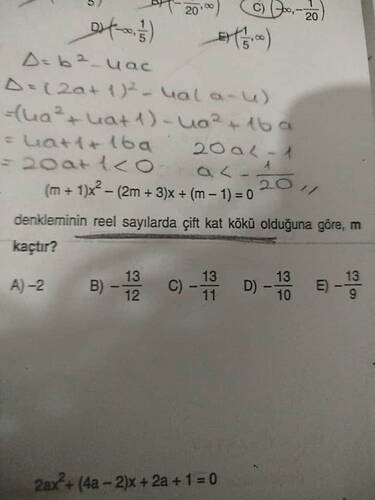 5) B) (-1/20, ∞) C) (-∞, -1/20)
D) (-∞, 1/5) E) (1/5, ∞)
Δ = b² - 4ac
Δ = (2a+1)² - 4a(a-4)
= (4a² + 4a + 1) - 4a² + 16a
= 4a + 1 + 16a 20a < -1
= 20a + 1 < 0 a < -1/20 //
(m + 1)x² – (2m + 3)x + (m – 1) = 0
denkleminin reel sayılarda çift kat kökü olduğuna göre, m
kaçtır?
A) –2 B) –13/12 C) –13/11 D) –13/10 E) –13/9
2ax² + (4a – 2)x + 2a + 1 = 0